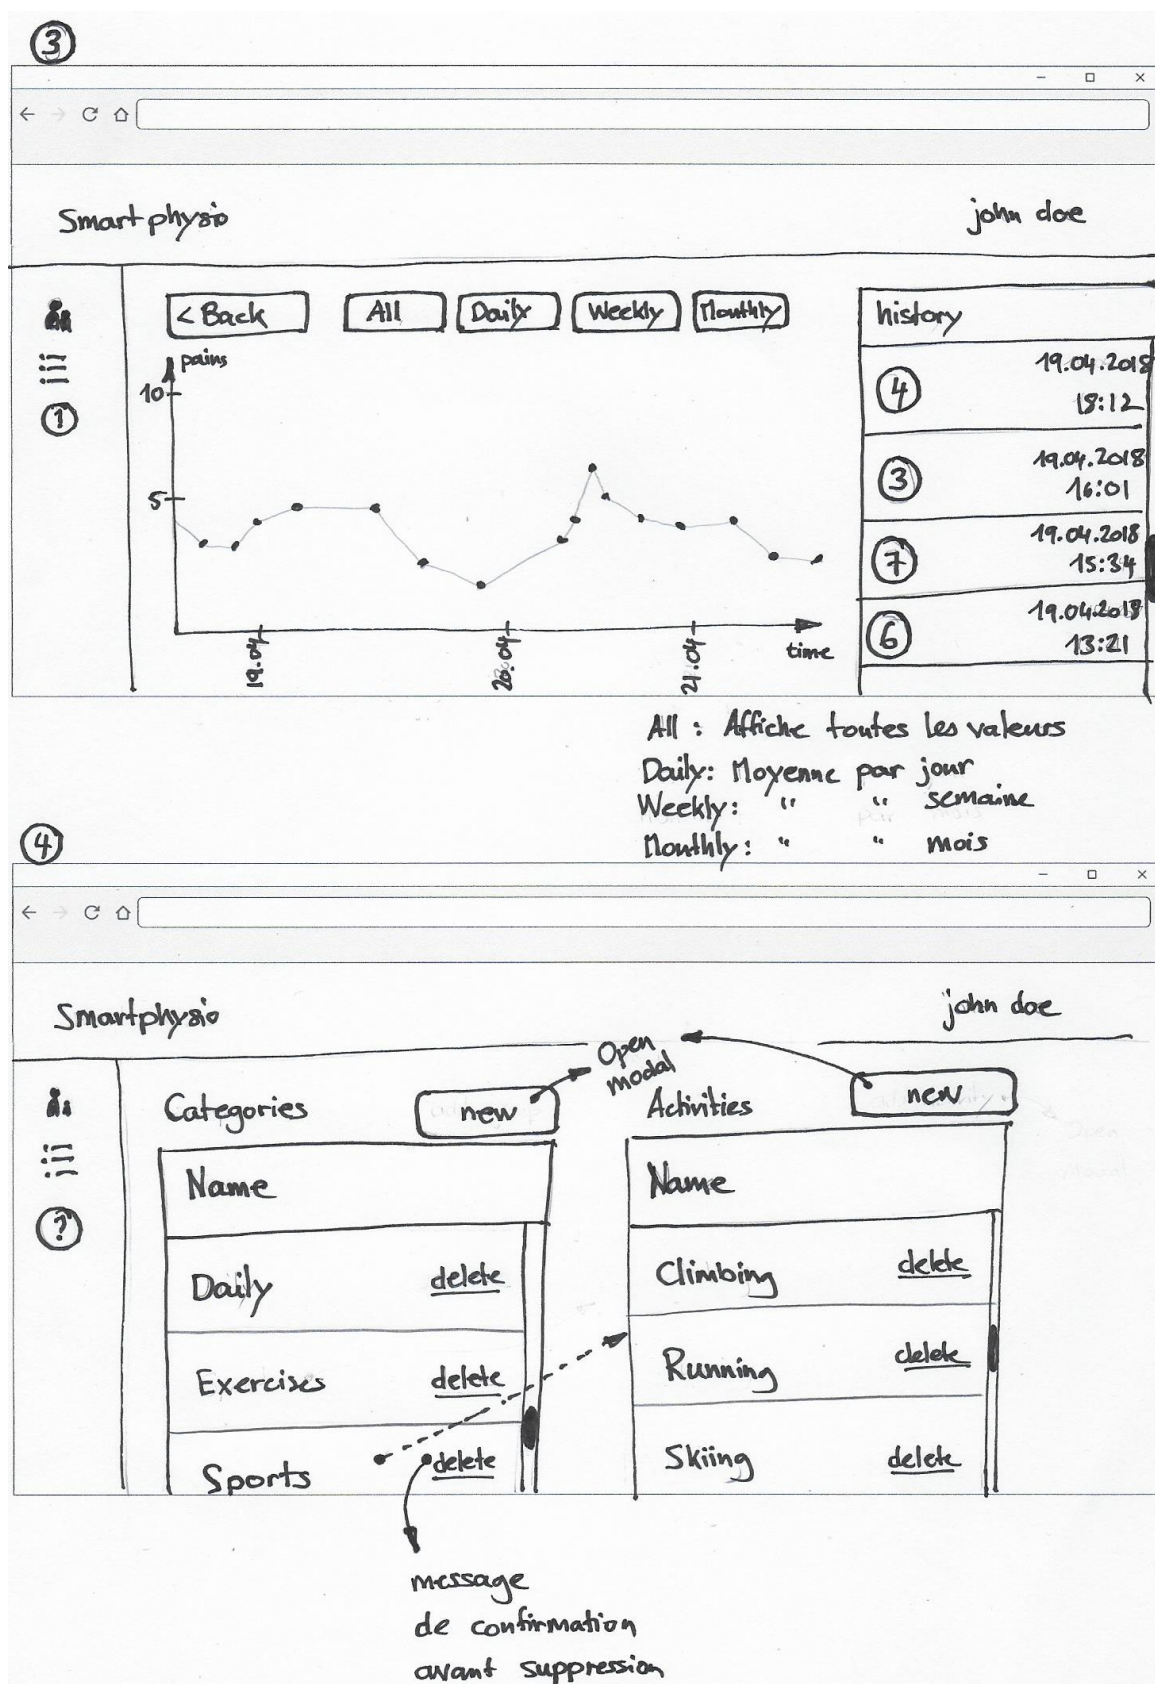 3
Smartphysio
john doe
< Back
All
Daily
Weekly
Monthly
history
pains
10
5
19.04
20.04
21.04
time
1
4
19.04.2018
18:12
3
19.04.2018
16:01
7
19.04.2018
15:34
6
19.04.2018
13:21
All : Affiche toutes les valeurs
Daily: Moyenne par jour
Weekly: " " semaine
Monthly: " " mois
4
Smartphysio
john doe
Open
modal
Categories
new
Activities
new
?
Name
Daily delete
Exercises delete
Sports delete
Name
Climbing delete
Running delete
Skiing delete
message
de confirmation
avant suppression